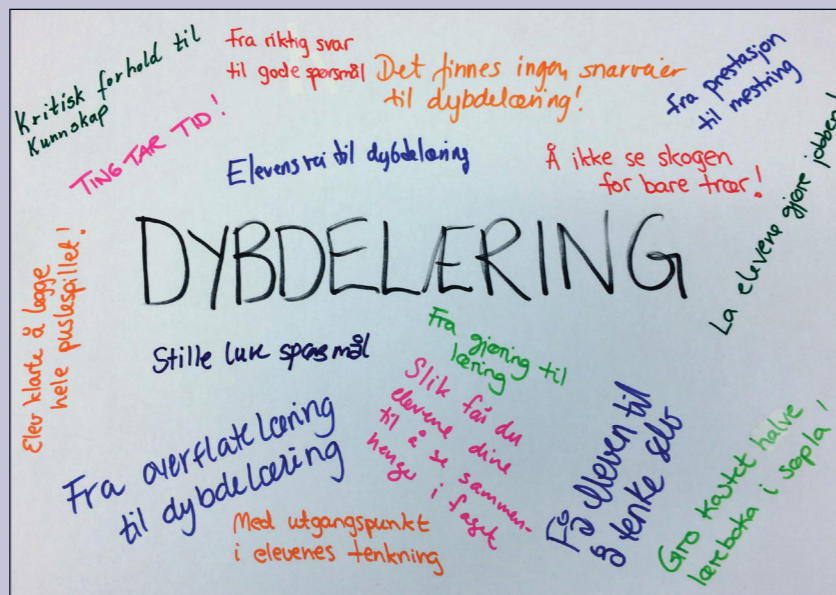 Kritisk forhold til
Kunnskap
Fra riktig svar
til gode spørsmål
Det finnes ingen snarveier
til dybdelæring!
fra prestasjon
til mestring
TING TAR TID!
Elevens vei til dybdelæring
Å ikke se skogen
for bare trær!
La elevene gjøre jobben!
DYBDELÆRING
Elev klarte å legge
hele puslespillet!
Stille lure spørsmål
Fra gjøring til
læring
Slik får du
elevene dine
til å se sammen-
henge i faget
Fra overflatelæring
til dybdelæring
Med utgangspunkt
i elevenes tenkning
Få eleven til
å tenke selv
Gro kastet halve
læreboka i søpla!